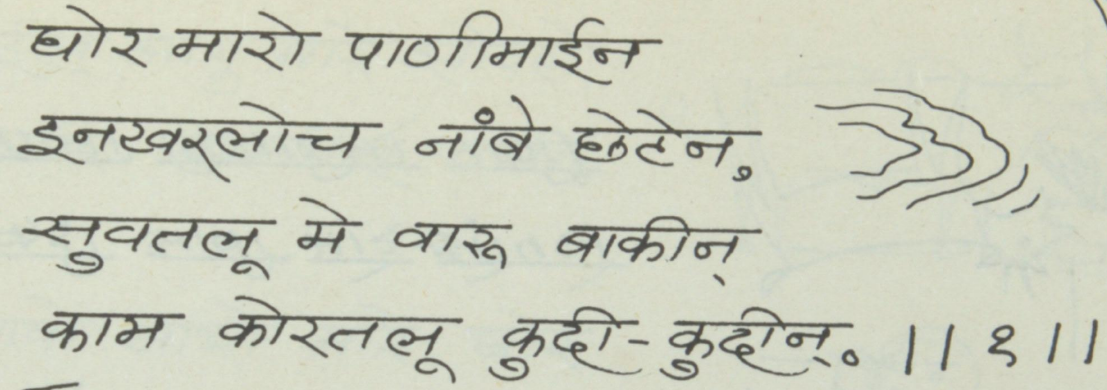 घोर मारो पाणीमाईन
इनखरलोच नांबे छेटेन.
सुवतलू मे वारू बाकीन्
काम कोरतलू कुदी-कुदीन्. ||१||